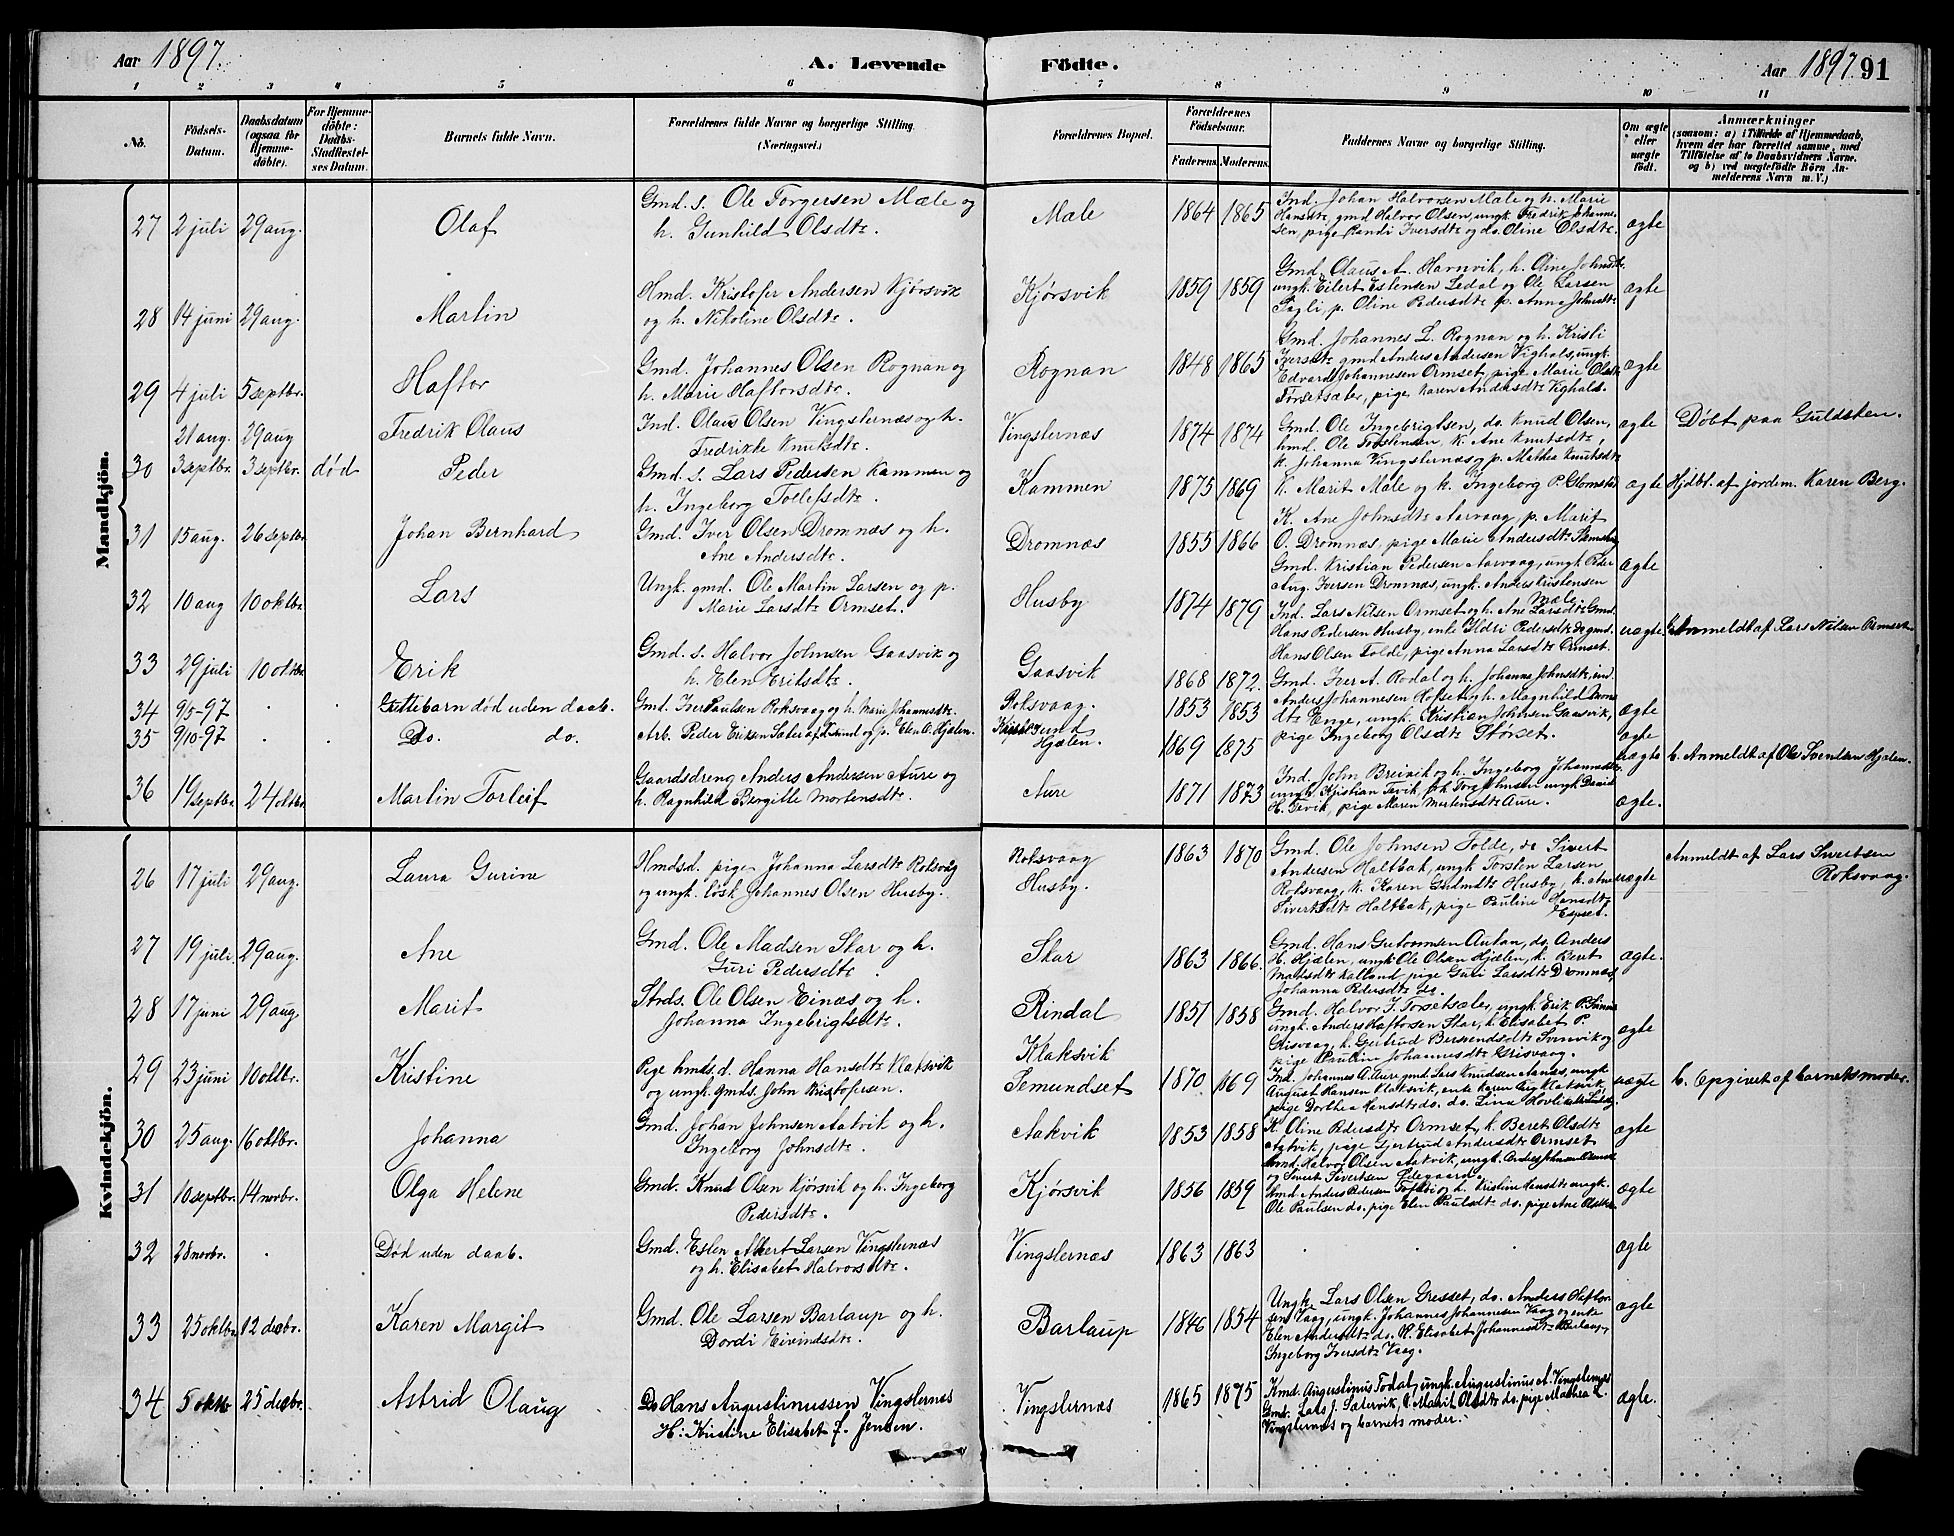 Aar 1897.
A. Levende Födte.
Aar 1897. 91
1 2 3 4 5 6 7 8 9 10 11
No.
Födsels-Datum.
Daabsdatum (ogsaa for Hjemme-döbte).
For Hjemme-döbte: Daabs-Stadfæstel-ses Datum.
Barnets fulde Navn.
Forældrenes fulde Navne og borgerlige Stilling. (Næringsvei.)
Forældrenes Bopæl.
Forældrenes Födselsaar.
Faderens. Moderens.
Faddernes Navne og borgerlige Stilling.
Om ægte eller uægte födt.
Anmærkninger (saasom: a) i Tilfælde af Hjemmedaab, hvem der har forrettet samme, med Tilföielse af to Daabsvidners Navne, og b) ved uægtefödte Börn An-melderens Navn m. V.)
Mandkjön.
27 2 juli 29 aug. Olaf Gmd. s. Ole Torgersen Mæle og h. Gunhild Olsdtr. Mæle 1864 1865 Ind. Johan Halvorsen Mæle og h. Marie Hansdtr, gmd Halvor Olsen, ungk. Fredrik Johannsen, pige Randi Iversdtr og do. Oline Olsdtr. ægte
28 14 juni 29 aug. Martin Hmd. Kristofer Andersen Kjörsvik og h. Nikoline Olsdtr. Kjörsvik 1859 1859 Gmd. Olaus A. Havnvik, h. Oline Johnsdtr. ungk. Eilert Estensen Ledal og Ole Larsen p. Oline Pedersdtr p. Anne Johnsdtr ægte
29 4 juli 5 septbr. Haftor Gmd. Johannes Olsen Rognan og h. Marie Haftorsdtr. Rognan 1848 1865 Gmd. Johannes L. Rognan og h. Kristi Iversdtr gmd Anders Andersen Vighals, ungk. Edvard Johannesen Ormset, pige Marie Olsdtr Torsetsæter, pige Karen Andersdtr Vighals. ægte
21 aug. 29 aug Fredrik Olaus Ind. Olaus Olsen Vingsternæs og h. Fredrikke Knutsdtr. Vingsternæs 1874 1874 Gmd. Ole Ingebrigtsen, do. Knud Olsen, hmd. Ole Torstensen, k. Ane Knutsdtr, k. Johanna Vingsternæs og p. Mathea Knutsdtr ægte Döbt paa Guldsten.
30 3 septbr. 3 septbr. död Peder Gmd. s. Lars Pedersen Kammen og h. Ingeborg Tollefsdtr. Kammen 1875 1869 K. Marit Mæle og k. Ingeborg P. Glomstad ægte Hjdbt. af jordem. Karen Berg.
31 15 aug. 26 septbr Johan Bernhard Gmd. Iver Olsen Dromnæs og h. Ane Andersdtr. Dromnæs 1855 1866 K. Ane Johnsdtr Aarvaag, p. Marit O. Dromnæs, pige Marie Andersdtr Gmd. Kristian Pedersen Aarvaag, ungk Peder Aug. Iversen Dromnæs, ungk. Anders Kristensen Mæle. ægte
32 10 aug 10 oktbr. Lars Ungk. gmd. Ole Martin Larsen og p. Marie Larsdtr Ormset. Husby 1874 1879 Ind. Lars Nilsen Ormset og h. Ane Larsdtr Gmd. Hans Pedersen Husby, enke Ildri Pedersdtr do gmd. Hans Olsen Folde, pige Anna Larsdtr Ormset. uægte Anmeldt af Lars Nilsen Ormset
33 29 juli 10 oktbr Erik Gmd. s. Halvor Johnsen Gaasvik og h. Elen Eriksdtr. Gaasvik 1868 1872. Gmd. Iver A. Rodal og h. Johanna Johnsdtr, ind Anders Johannesen Holset og h. Magnhild dtr Enge, ungk. Kristian Johnsen Gaasvik, pige Ingeborg Olsdtr Störset. ægte
34 9/5-97 . . Guttebarn död uden daab. Gmd. Iver Paulsen Roksvaag og h. Marie Johannesdtr. Roksvaag. 1853 1853 ægte
35 9/10-97 . . Do. do. Arb. Peder Eriksen Sæter af Krsund og p. Elen O. Hjælen. Kristiansund Hjælen. 1869 1875 uægte b. Anmeldt af Ole Svendsen Hjælen.
36 19 septbr 24 oktbr Martin Torleif Gaardsdreng Anders Andersen Aure og h. Ragnhild Bergitte Mortensdtr. Aure 1871 1873 Ind. John Breivik og h. Ingeborg Johannesdtr ungk Kristian Tevik, Tore Johnsen ungk David H. Tevik, pige Maren Mortensdtr Aure. ægte.
Kvindekjön.
26 17 juli 29 aug. Laura Gurine Hmdsd. pige Johanna Larsdtr Roksvaag og ungk. losk Johannes Olsen Husby. Roksvaag Husby. 1863 1870 Gmd. Ole Johnsen Folde, do Sivert Andersen Haltbak, ungk Torsten Larsen Roksvaag, k. Karen Gudmdtr Husby, k. Ane Sivertsdtr Haltbak, pige Pauline Hansdtr Espset. uægte Anmeldt af Lars Sivertsen Roksvaag.
27 19 juli. 29 aug. Ane Gmd. Ole Madsen Skar og h. Guri Pedersdtr. Skar 1863 1866. Gmd. Hans Guttormsen Autan, do. Anders H. Hjælen, ungk Ole Olsen Hjælen, k. Beret Madsdtr Kalland, pige Guri Larsdtr Dromnæs, Johanna Pedersdtr do. ægte.
28 17 juni 29 aug. Marit Strds. Ole Olsen Einæs og h. Johanna Ingebrigtsdtr. Rindal 1851 1858 Gmd. Halvor J. Torsetsæter, ungk. Erik P. ungk. Anders Haftorsen Skar, k. Elisabet P. Grisvaag, k. Gertrud Berntsdtr og pige Pauline Johannesdtr Grisvaag. ægte
29 23 juni 10 oktbr. Kristine Pige hmds.d. Hanna Hansdtr Klaksvik og ungk. gmds. John Kristofersen. Klaksvik Semundset 1870 1869 Ind. Johannes A. Aure gmd Lars Knudsen Aanes, ungk August Hansen Klaksvik, enke Karen Klaksvik, pige Dorthea Hansdtr do. do. Lina uægte b. Opgivet af barnets moder.
30 25 aug. 16 oktbr. Johanna Gmd. Johan Johnsen Aakvik og h. Ingeborg Johnsdtr. Aakvik 1853 1858 K. Oline Pedersdtr Ormset, k. Beret Olsdtr Aakvik, pige Gjertrud Andersdtr Ormset Gmd. Halvor Olsen Aakvik, ungk. Anders Johnsen og Sivert Sivertsen Ödegaard. ægte
31 10 septbr. 14 novbr. Olga Helene Gmd. Knud Olsen Kjörsvik og h. Ingeborg Pedersdtr. Kjörsvik 1856 1859 Gmd Anders Pedersen og h. Kristine Hansdtr ungk. Ole Paulsen do. pige Elen Paulsdtr do. pige Ane Olsdtr ægte
32 28 novbr. . Död uden daab. Gmd. Esten Albert Larsen Vingsternæs og h. Elisabet Halvorsdtr. Vingsternæs 1863 1863 . . ægte
33 25 oktbr 12 decbr. Karen Margit Gmd. Ole Larsen Barlaup og h. Dordi Eivindsdtr. Barlaup 1846 1854 Ungk. Lars Olsen Gresset, do. Anders Haftorsen Vaag, ungk. Johannes Johannesen Vaag og enke Elen Andersdtr do. K. Elisabet Johannesdtr Barlaup, Ingeborg Iversdtr Vaag. ægte
34 5 oktb 25 decbr. Astrid Olaug Do Hans Augustinussen Vingsternæs H: Kristine Elisabet f. Jensen. Vingsternæs 1865 1875 Kmd. Augustinus Todal, ungk. Augustinus A. Vingsternæs Gmd. Lars J. Sætervik, Marit Olsdtr do. pige Mathea L. Vingsternæs og barnets moder. ægte.